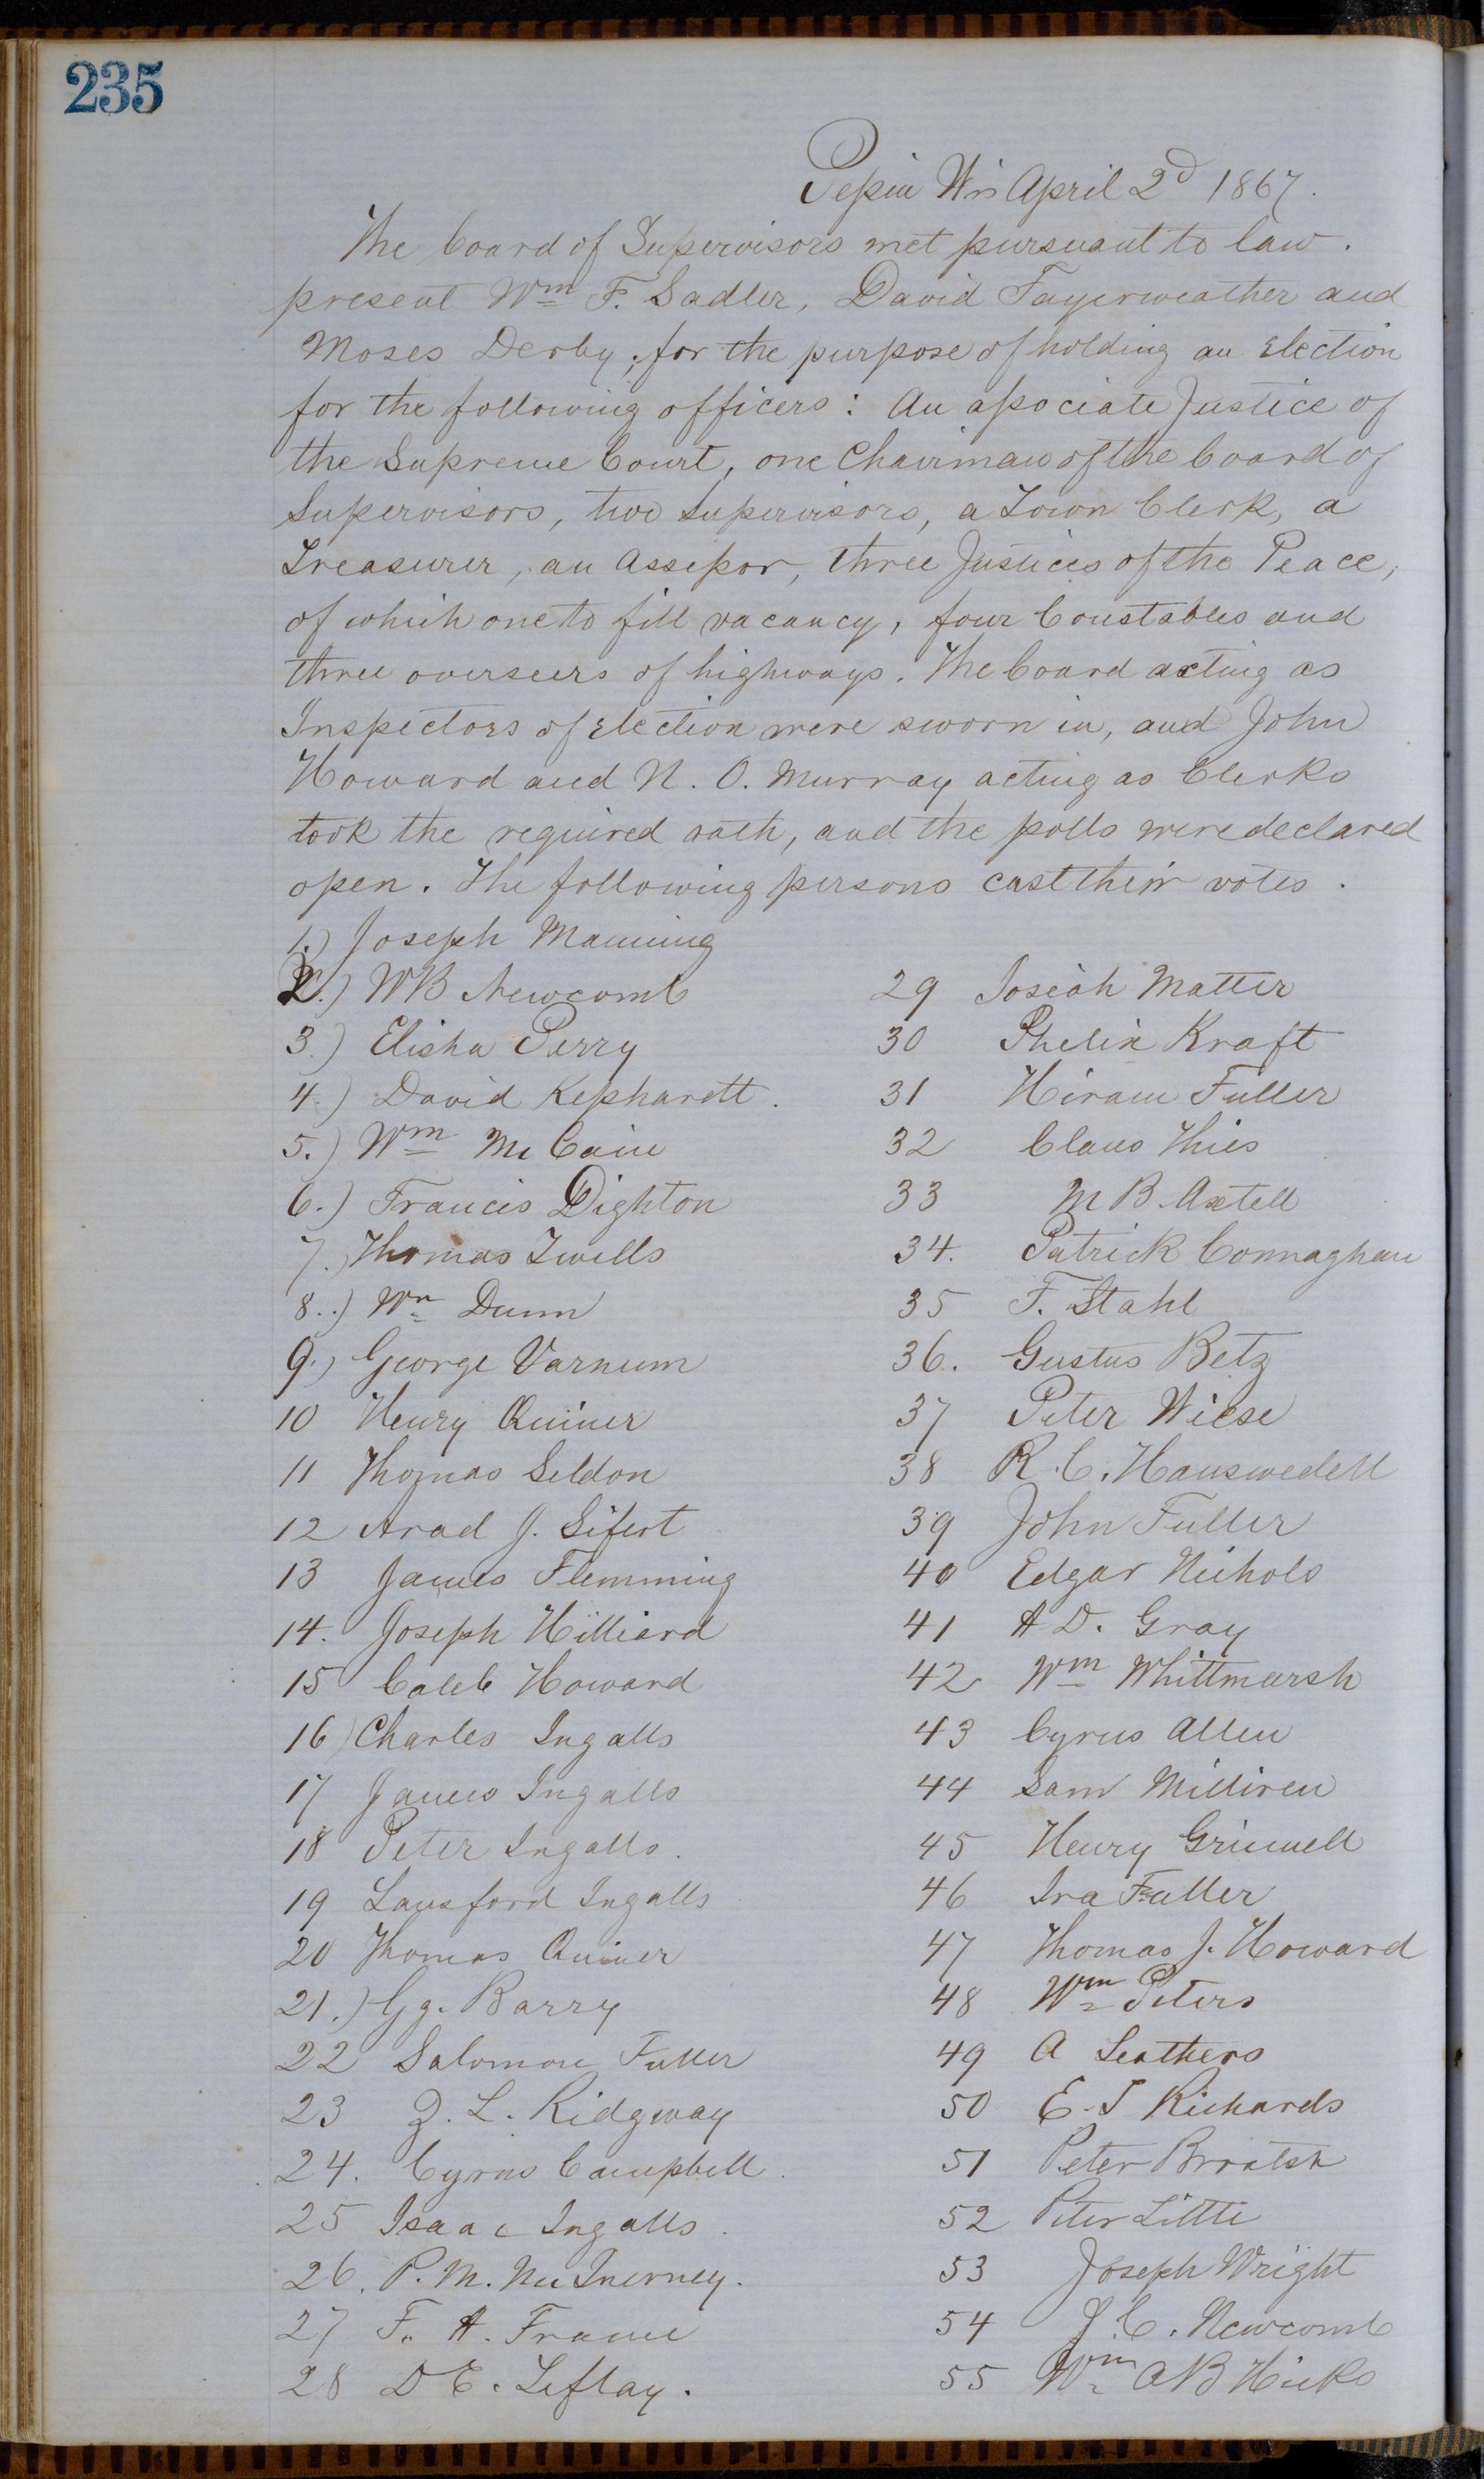 235
Pepin Wis April 2d 1867.
The board of Supervisors met pursuant to law.
present Wm F. Sadler, David Fayerweather and
Moses Derby, for the purpose of holding an Election
for the following officers: An associate Justice of
the Supreme Court, one Chairman of the board of
Supervisors, two supervisors, a Town Clerk, a
Treasurer, an Assessor, three Justices of the Peace,
of which one to fill vacancy, four Constables and
three overseers of highways. The board acting as
Inspectors of Election were sworn in, and John
Howard and N. O. Murray acting as Clerks
took the required oath, and the polls were declared
open. The following persons cast their votes.
1.) Joseph Manning
2.) WB Newcomb
3.) Elisha Perry
4.) David Kephardt.
5.) Wm Mc Cain
6.) Francis Dighton
7.) Thomas Twills
8.) Wm Dunn
9.) George Varnum
10 Henry Quiner
11 Thomas Seldon
12 Arad J. Sifert
13 James Flemming
14. Joseph Hilliard
15 Caleb Howard
16) Charles Ingalls
17 James Ingalls
18 Peter Ingalls.
19 Lansford Ingalls
20 Thomas Quiner
21.) Gg. Barry
22 Salomon Fuller
23 Z. L. Ridgway
24. Cyrus Campbell
25 Isaac Ingalls.
26. P. M. Mc Inerney.
27 F. A. Frame
28 D E. Leflay.
29 Josiah Matter
30 Phelix Kraft
31 Hiram Fuller
32 Claus Thies
33 M B. Axtell
34. Patrick Connaghan
35 F. Stahl
36. Gustus Betz
37 Peter Wiese
38 R. C. Hauswedell
39 John Fuller
40 Edgar Nichols
41 A D. Gray
42 Wm Whittmarsh
43 Cyrus Allen
44 Sam Milliren
45 Henry Grinnell
46 Ira Fuller
47 Thomas J. Howard
48 Wm Peters
49 A Leathers
50 E. T Richards
51 Peter
52 Peter Little
53 Joseph Wright
54 J. C. Newcomb
55 Wm A B Hicks